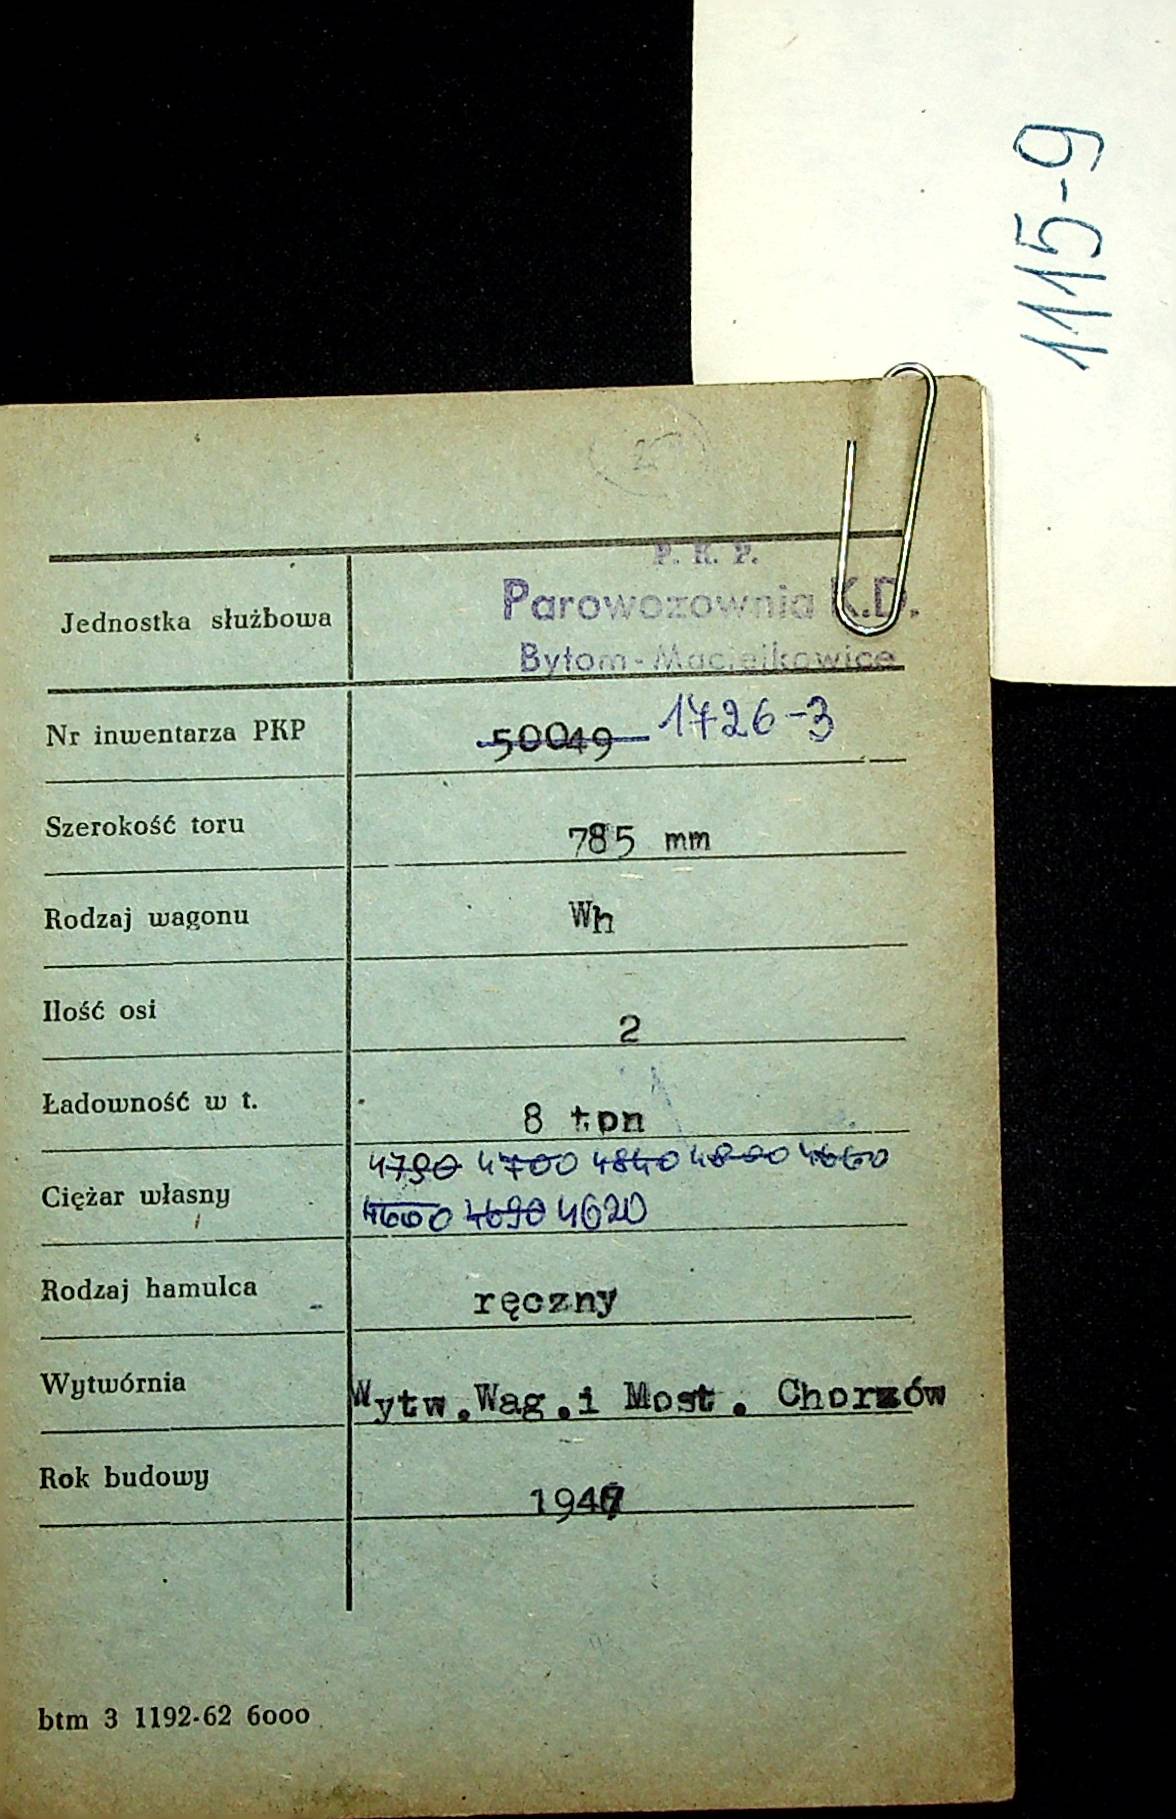 1115-9
P. K. P.
Parowozownia K.D.
Jednostka służbowa
Bytom-Maciejkowice
Nr inwentarza PKP 50049 1726-3
Szerokość toru 785 mm
Rodzaj wagonu Wh
Ilość osi 2
Ładowność w t. 8 ton
4790 4700 4840 4800 4660
Ciężar własny
4600 4690 4620
Rodzaj hamulca ręczny
Wytwórnia Wytw.Wag.i Most. Chorzów
Rok budowy
btm 3 1192-62 6000